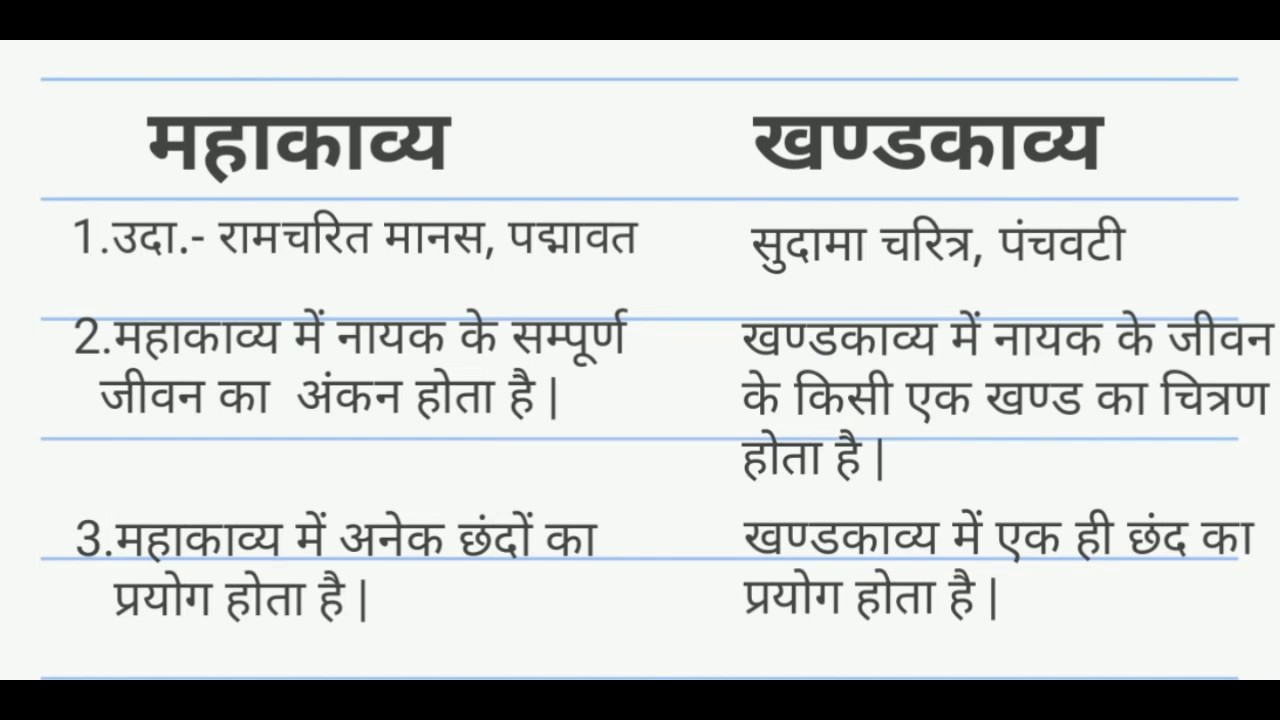 महाकाव्य
खण्डकाव्य
1.उदा.- रामचरित मानस, पद्मावत
सुदामा चरित्र, पंचवटी
2.महाकाव्य में नायक के सम्पूर्ण
जीवन का अंकन होता है |
खण्डकाव्य में नायक के जीवन
के किसी एक खण्ड का चित्रण
होता है |
3.महाकाव्य में अनेक छंदों का
प्रयोग होता है |
खण्डकाव्य में एक ही छंद का
प्रयोग होता है |